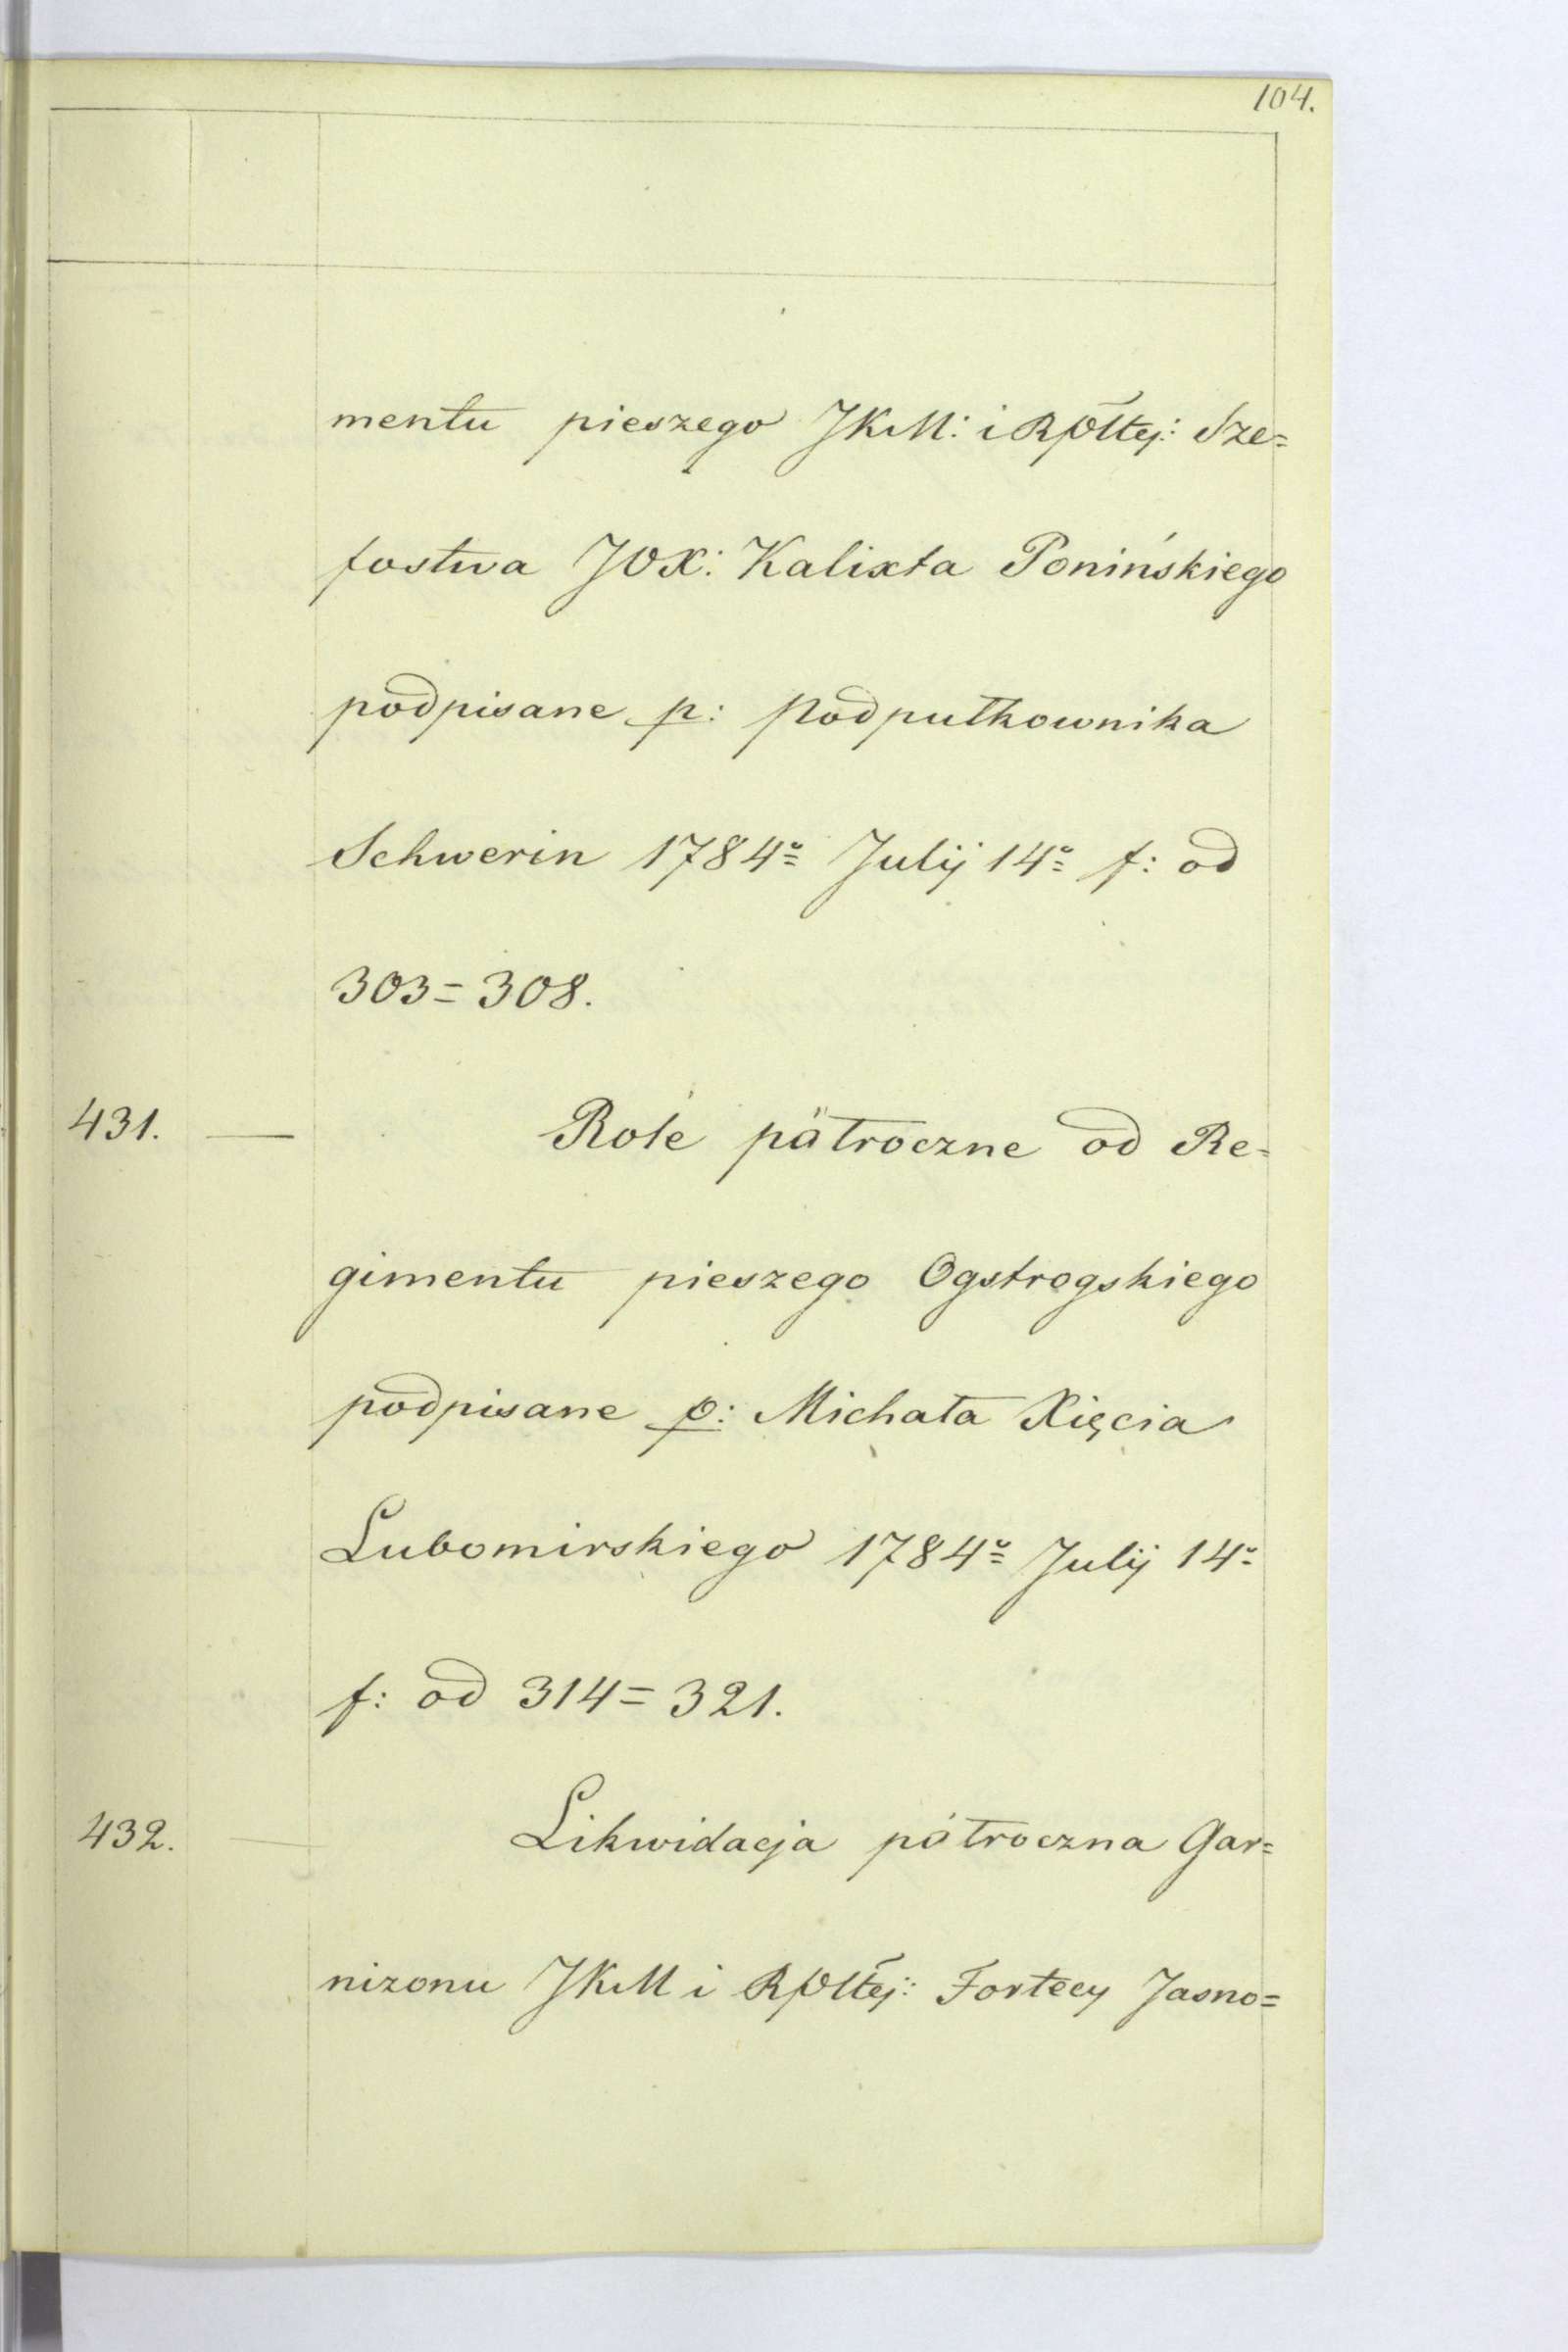 104.
mentu pieszego JKM: i Rpłtej: Sze=
fostwa JOX: Kalixta Ponińskiego
podpisane p: Podpułkownika
Schwerin 1784º Julij 14º f: od
303=308.
431. — Role półroczne od Re=
gimentu pieszego Ogstrogskiego
podpisane p: Michała Xięcia
Lubomirskiego 1784º Julij 14º
f: od 314=321.
432. — Likwidacja półroczna Gar=
nizonu JKM i Rpłtej: Fortecy Jasno=